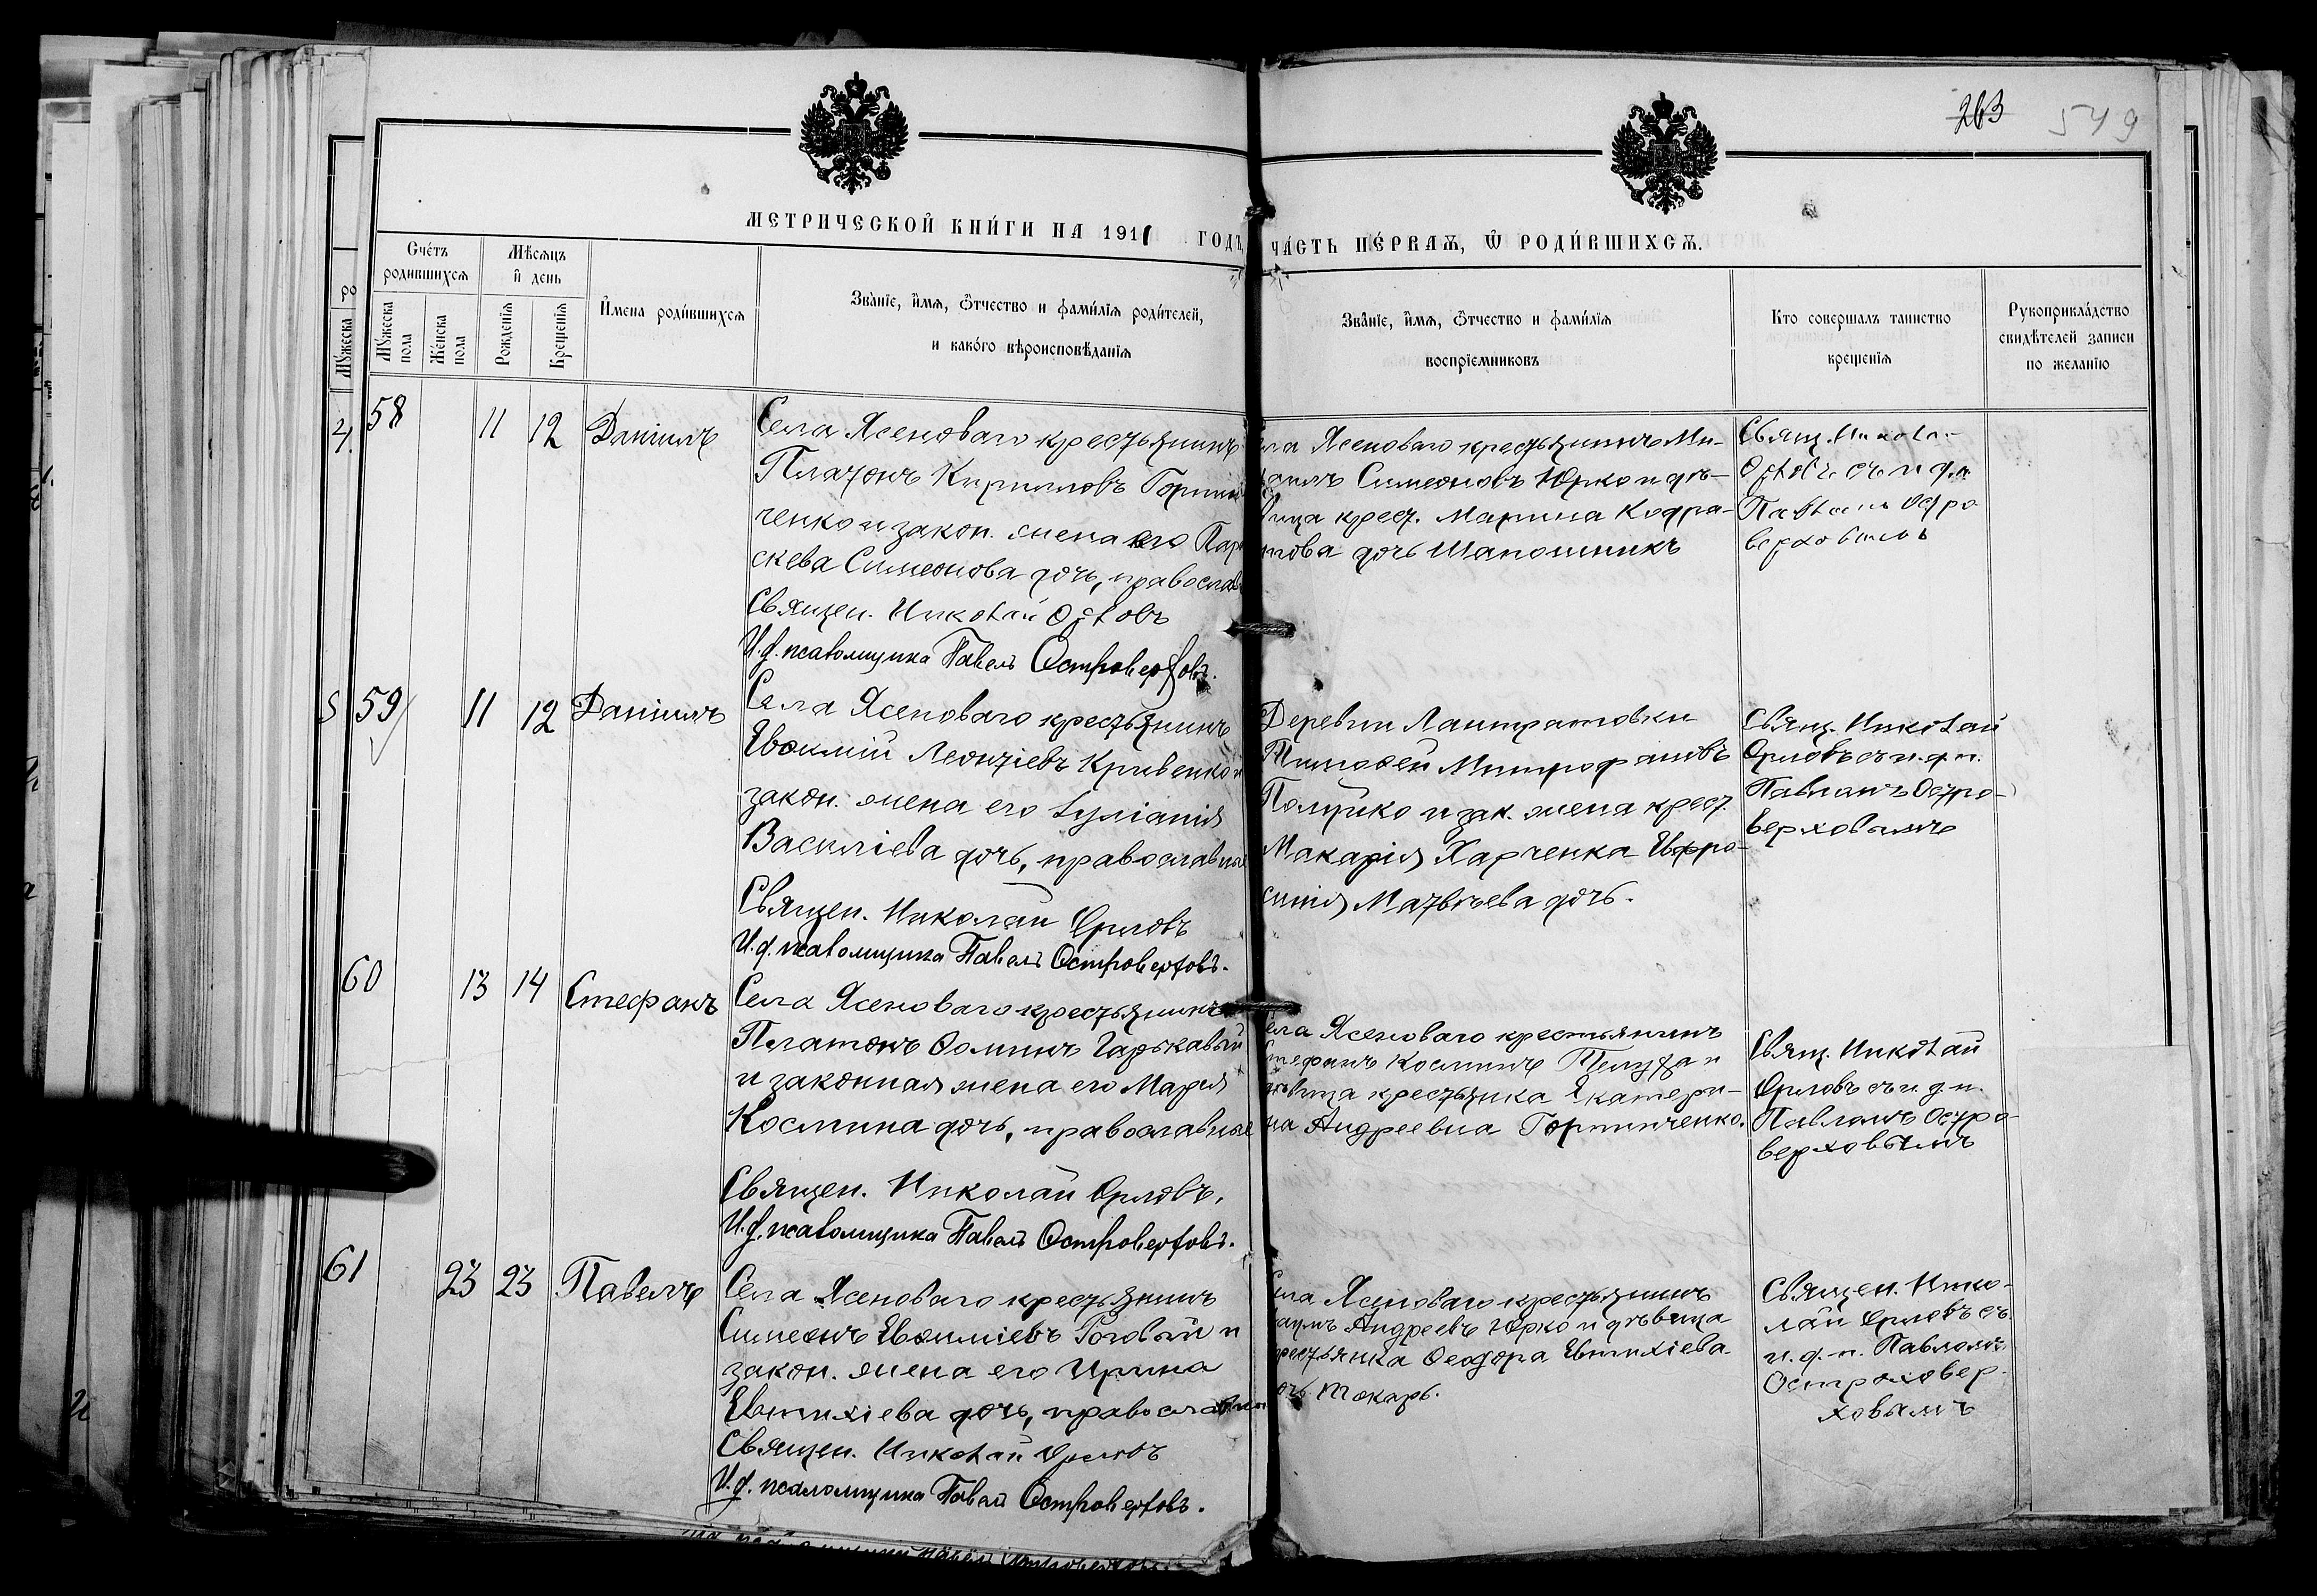 263 549
МЕТРИЧЕСКОЙ КНИГИ НА 1911 ГОДЪ, ЧАСТЬ ПЕРВАѦ, Ѡ РОДИВШИХСѦ.
Счетъ родившихсѧ
Мѣсѧцъ и день
Мужеска пола
Женска пола
Рожденїѧ
Крещенїѧ
Имена родившихсѧ
Званїе, имѧ, ѻтчество и фамилїѧ родителей,
и какого вѣроисповѣданїѧ
Званїе, имѧ, ѻтчество и фамилїѧ
воспрїемниковъ
Кто совершалъ таинство
крещенїѧ
Рукоприкладство
свидѣтелей записи
по желанїю
58 11 12 Даніилъ
Села Ясеноваго крестьянинъ
Платонъ Кирилловъ Горпин
ченко и закон. жена его Пара
скева Симеонова дочь, православ
Священ. Николай Орловъ
И.д. псаломщика Павелъ Островерховъ.
ла Ясеноваго крестьянинъ Ми-
хаилъ Симеоновъ Юрко и дѣ-
вица крест. Марина Кодра-
това дочь Шапошникъ
Свящ. Никола-
Орловъ съ и. д. п.
Павломъ Остро
верховымъ
59 11 12 Даніилъ
Села Ясеноваго крестьянинъ
Евѳимій Леонтіевъ Кривенко и
закон. жена его Іуліанія
Василіева дочь, православные
Священ. Николай Орловъ
И.д. псаломщика Павелъ Островерховъ.
Деревни Лантратовки
Тимоѳей Митрофановъ
Полуйко и зак. жена крест.
Макарія Харченка Евфро-
синія Матвѣева дочь.
Свящ. Николай
Орловъ съ и. д. п.
Павломъ Остро-
верховымъ
60 13 14 Стефанъ
Села Ясеноваго крестьянинъ
Платонъ Ѳоминъ Гарькавый
и законная жена его Марія
Космина дочь, православные
Священ. Николай Орловъ.
И.д. псаломщика Павелъ Островерховъ.
ела Ясеноваго крестьянинъ
Стефанъ Косминъ и
дѣвица крестьянка Екатери-
на Андреевна Горпинченко.
Свящ. Николай
Орловъ съ и. д. п.
Павломъ Остро-
верховымъ
61 23 23 Павелъ
Села Ясеноваго крестьянинъ
Симеонъ Евѳиміевъ Роговый и
закон. жена его Ирина
Евтихіева дочь, православные
Священ. Николай Орловъ
И.д. псаломщика Павелъ Островерховъ.
ела Ясеноваго крестьянинъ
Андреевъ Юрко и дѣвица
крестьянка Ѳеодора Евтихіева
дочь Токарь.
Священ. Нико-
лай Орловъ съ
и. д. п. Павломъ
Островер-
ховымъ